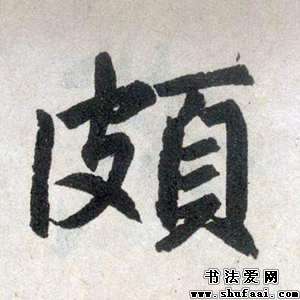 頗
书法爱网
www.shufaai.com